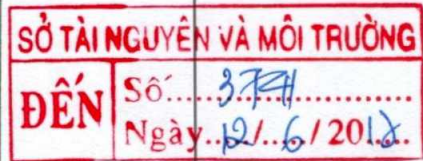 SỞ TÀI NGUYÊN VÀ MÔI TRƯỜNG
ĐẾN
Số:
Ngày 12/6/201